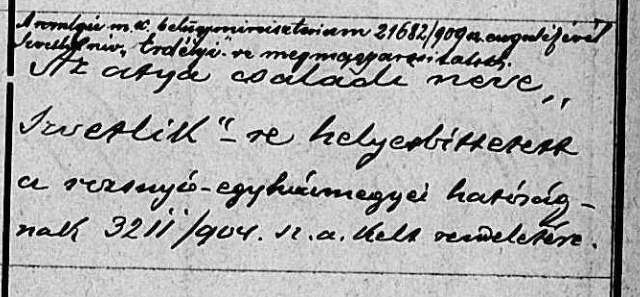 A m. k. belügyminiszterium 21682/909 a. engedélyével
Szvetlik név „Erdélyi"-re megmagyarosittatott.
Az atya családi neve „
Szvetlik"-re helyesbíttetett
a rozsnyó-egyházmegyei hatóság-
nak 3211/904. sz. a. kelt rendeletére.